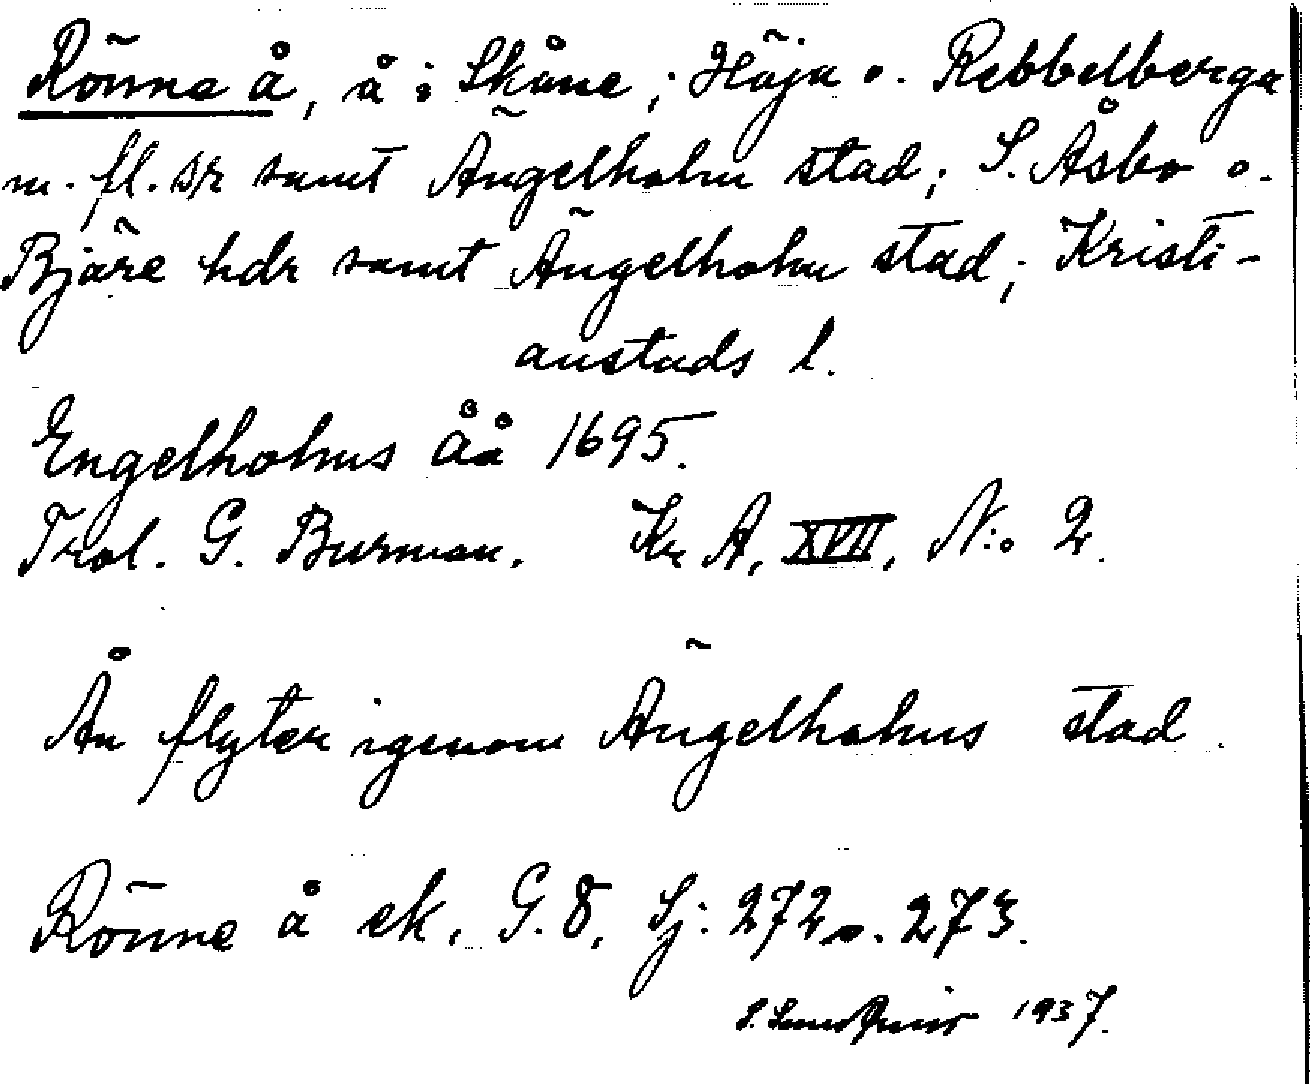 Rönne å, å i Skåne; Höja o. Rebbelberga
m. fl. sr samt Ängelholm stad; S. Åsbo o.
Bjäre hdr samt Ängelholm stad; Kristi-
anstads l.
Engelholms Åå 1695.
Trol. G. Burman. Kr A, XVII, N:o 2.
Ån flyter igenom Ängelholms stad.
Rönne å ek. G. 8, Sj: 272 o. 273.
1937.